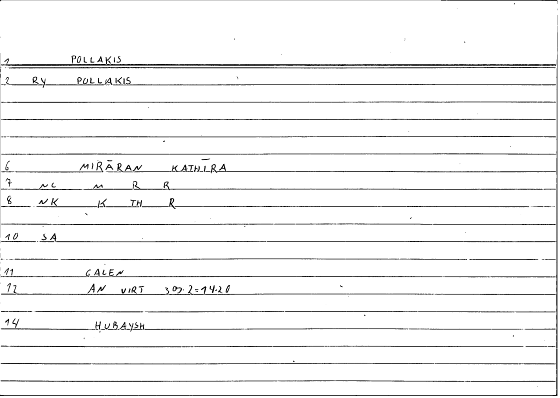 1 POLLAKIS
2 RY POLLAKIS
6 MIRĀRAN KATHĪRA
7 NC M R R
8 NK K TH R
10 SA
11 GALEN
12 AN VIRT 309.2=14.20
14 HUBAYSH